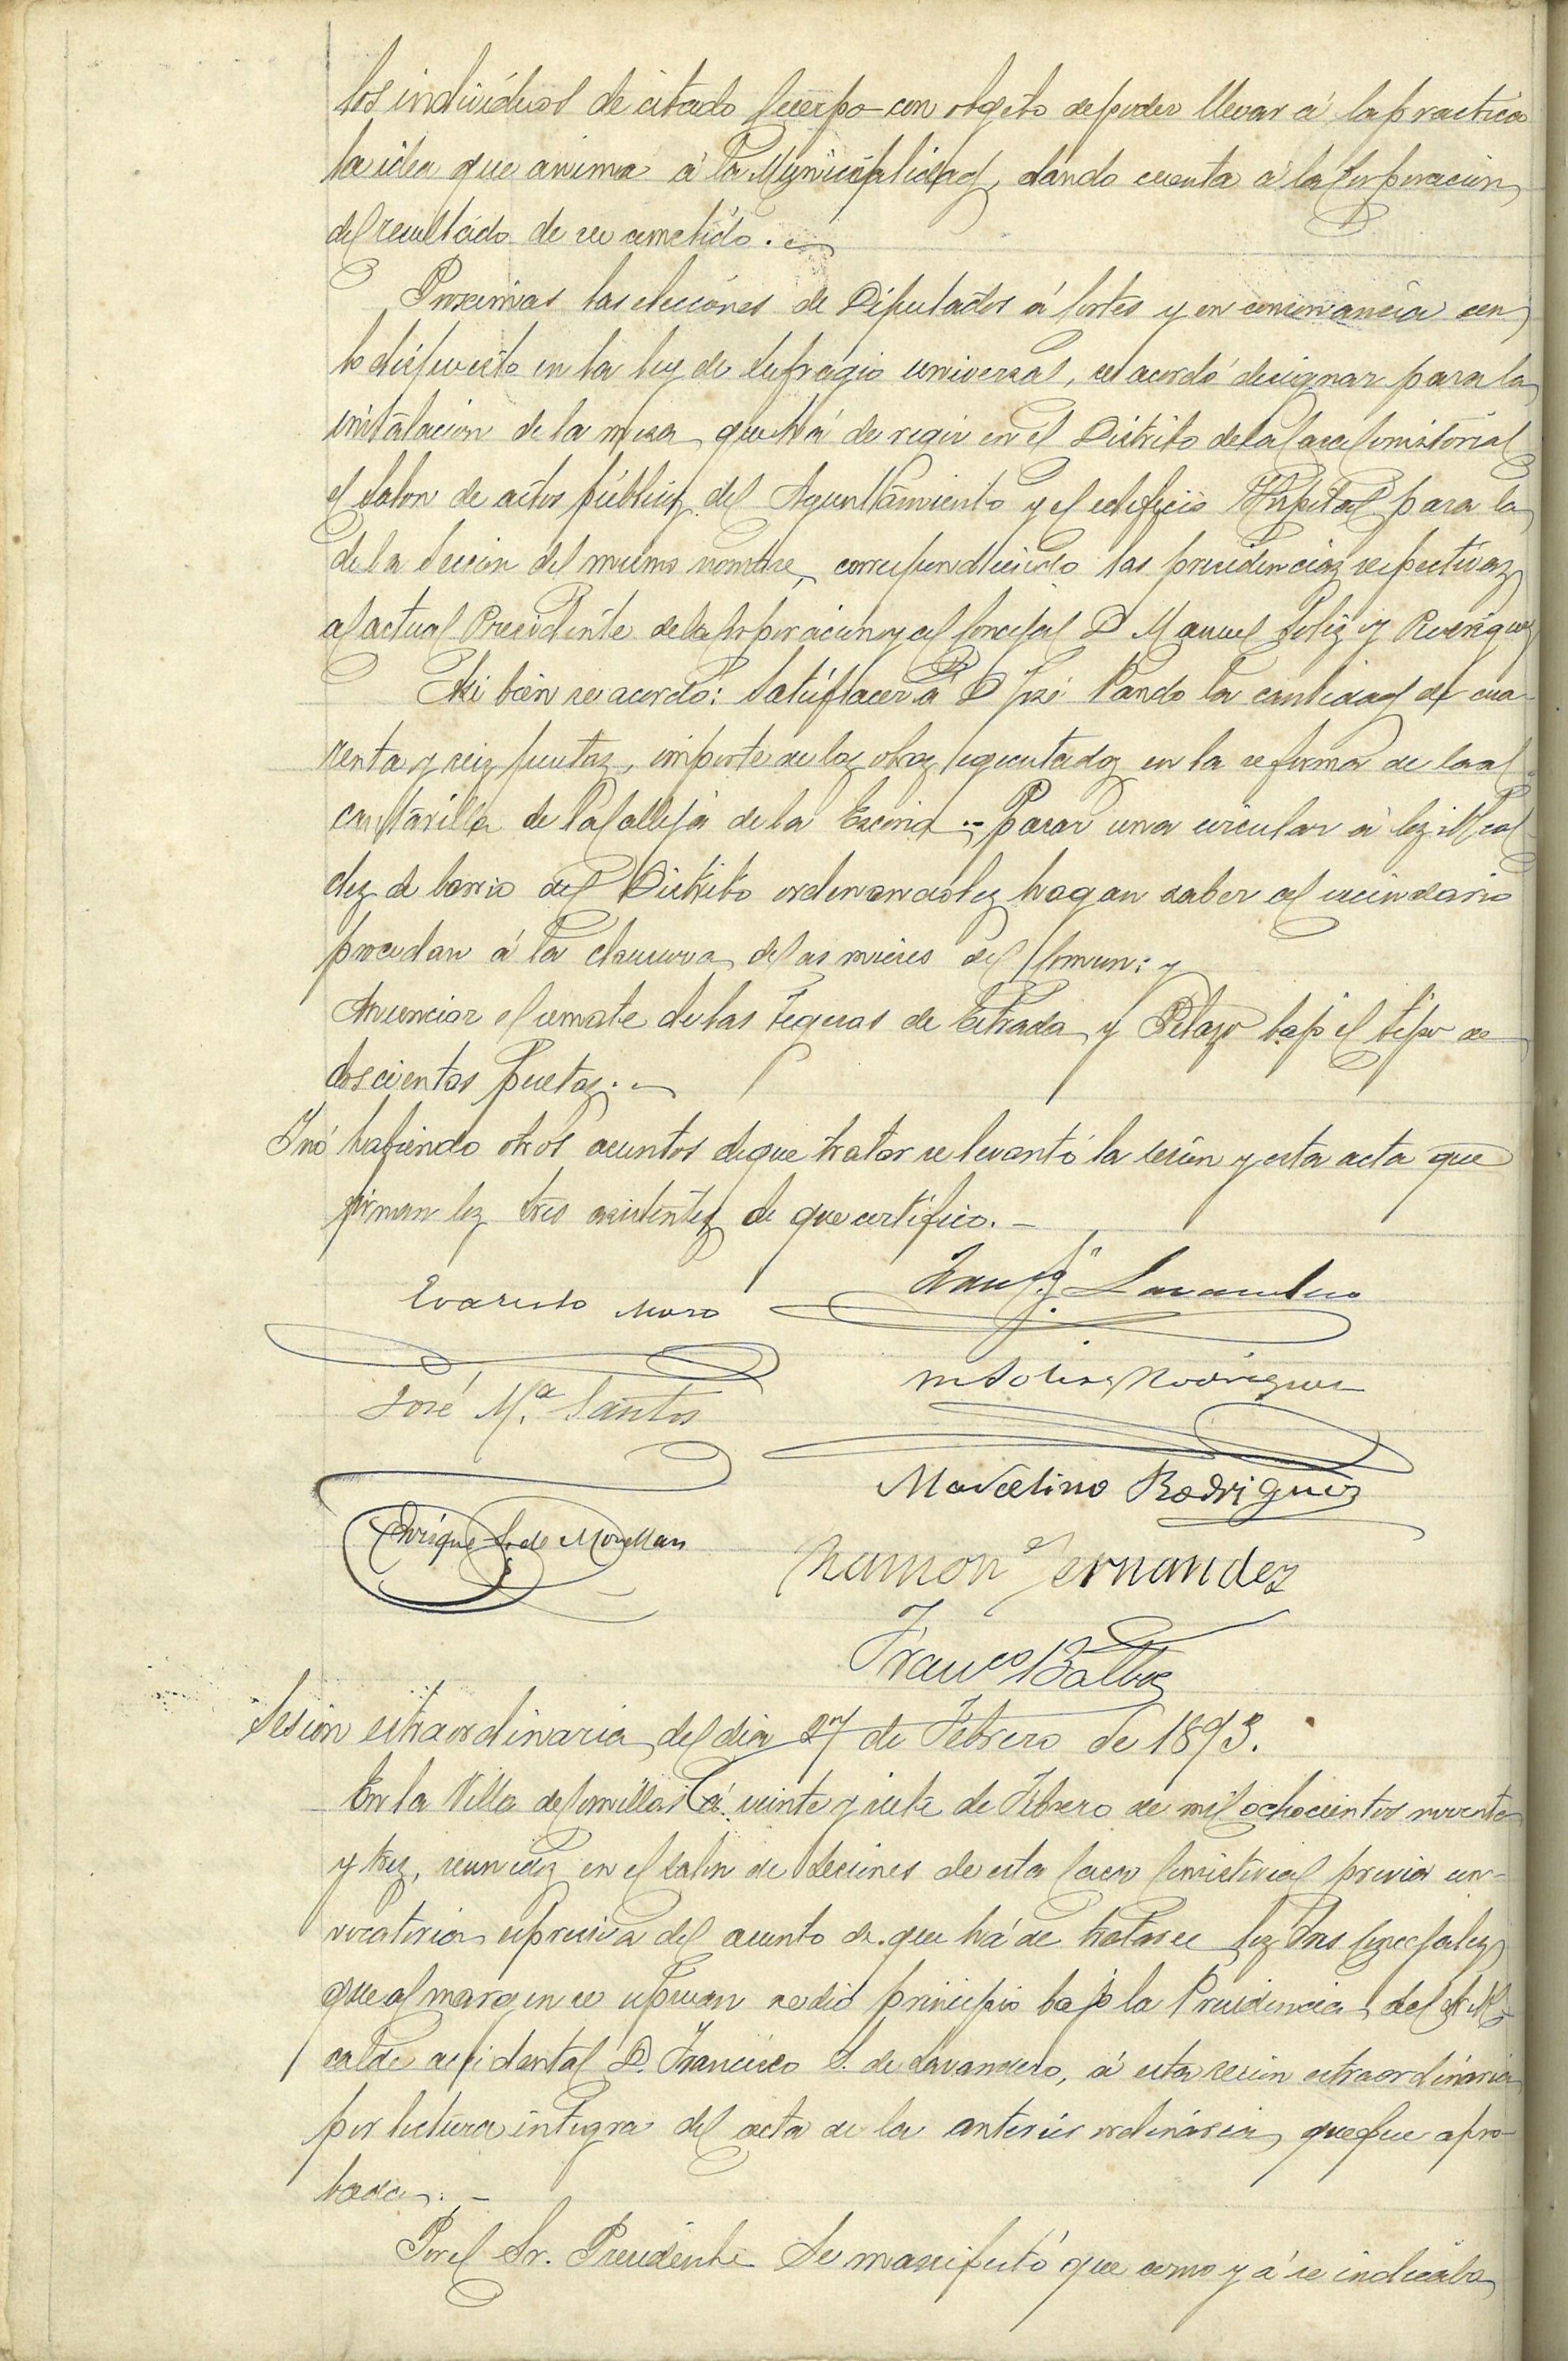 los indivíduos de citado Cuerpo con objeto de poder llevar á la practica
la idea que anima á la Municipalidad, dando cuenta á la Corporacion
del resultado de su cometido.
Proximas las elecciónes de Diputados á Cortes y en consonancia con
lo dispuesto en la ley de sufragio universal, se acordó designar para la
instalacion de la mesa que há de regir en el Distrito de la Casa Consistorial
el salon de actos públicos del Ayuntamiento y el edificio Hospital para la
de la Seccion del mismo nombre, correspondiendo las presidencias respectivas
al actual Presidente de la Corporacion y al Concejal D Manuel Soliz y Rodriguez
Asi bien se acordó: Satisfacer á D José Pando la cantidad de cua-
renta y seis pesetas, importe de las obras egecutadas en la reforma de la al-
cantarilla de la Calleja de la ; Pasar una circular á los Alcal-
des de barrio del Distrito ordenandoles hagan saber al vecindario
procedan á la clausura de las mieses del Comun: y
Anunciar el remate de las Teqeras de Estrada y bajo el tipo de
doscientas pesetas.
Y nó habiendo otros asuntos de que tratar se levantó la sesion y esta acta que
firman los Sres asistentes de que certifico.
Evaristo Moro
Franco S. Lavandero
José Mª Santos
M Soliz Rodriguez
Marcelino Rodriguez
Enrique S. de Movellan
Ramon Fernandez
Franco Balbas
Sesion estraordinaria del dia 27 de Febrero de 1893.
En la Villa de Comillas á veinte y siete de Febrero de mil ochocientos noventa
y tres, reunidos en el salon de Sesiones de esta Casa Consistorial previa con-
vocatoria espresiva del asunto de que há de tratarse los Sres Concejales
que al margen se espresan se dió principio bajo la Presidencia del Sr Al-
calde accidental D. Francisco S. de Lavandero, á esta sesion estraordinaria
por lectura íntegra del acta de la anterior ordinária que fue apro-
bada.
Por el Sr. Presidente Se manifestó que como yá se indicaba